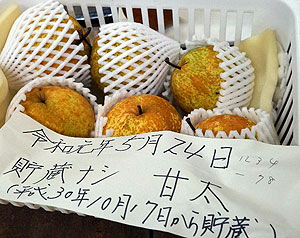 令和元年5月24日
貯蔵ナシ 甘太
(平成30年10月17日から貯蔵)